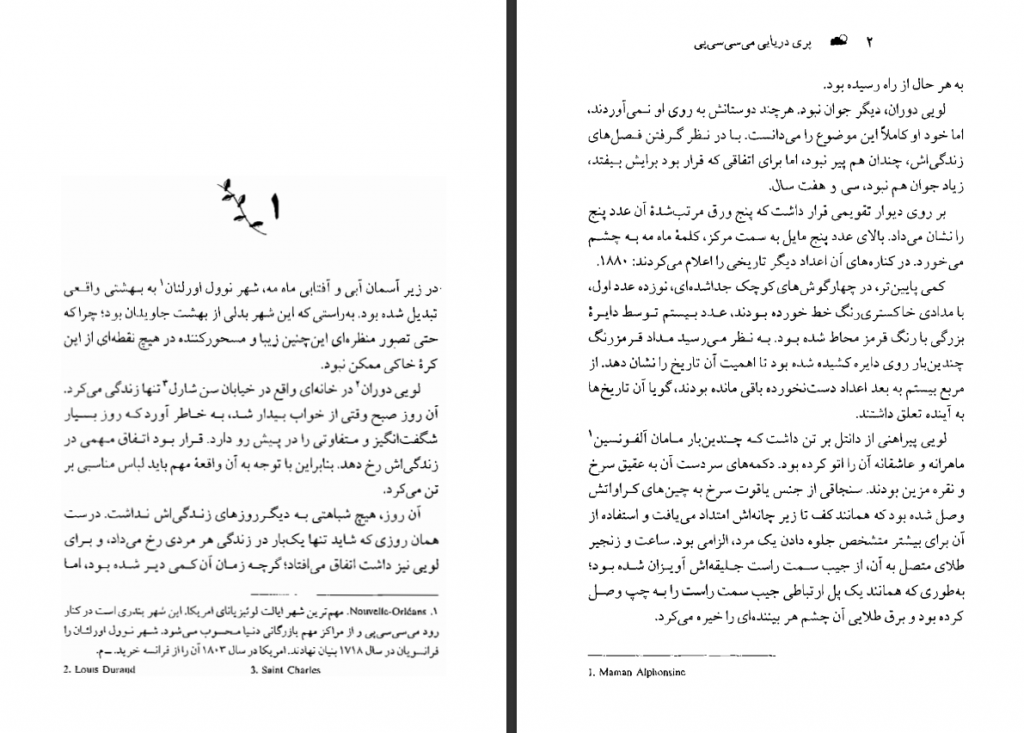 ۱
در زیر آسمان آبی و آفتابی ماه مه، شهر نوول اورلئان۱ به بهشتی واقعی
تبدیل شده بود. به‌راستی که این شهر بدلی از بهشت جاویدان بود؛ چرا که
حتی تصور منظره‌ای این‌چنین زیبا و مسحورکننده در هیچ نقطه‌ای از این
کرهٔ خاکی ممکن نبود.
لویی دوران۲ در خانه‌ای واقع در خیابان سن شارل۳ تنها زندگی می‌کرد.
آن روز صبح وقتی از خواب بیدار شد، به خاطر آورد که روز بسیار
شگفت‌انگیز و متفاوتی را در پیش رو دارد. قرار بود اتفاق مهمی در
زندگی‌اش رخ دهد. بنابراین با توجه به آن واقعهٔ مهم باید لباس مناسبی بر
تن می‌کرد.
آن روز، هیچ شباهتی به دیگر روزهای زندگی‌اش نداشت. درست
همان روزی که شاید تنها یک‌بار در زندگی هر مردی رخ می‌داد، و برای
لویی نیز داشت اتفاق می‌افتاد؛ گرچه زمان آن کمی دیر شده بود، اما
۱. Nouvelle-Orléans. مهم‌ترین شهر ایالت لوئیزیانای امریکا. این شهر بندری است در کنار
رود می‌سی‌سی‌پی و از مراکز مهم بازرگانی دنیا محسوب می‌شود. شهر نوول اورلئان را
فرانسویان در سال ۱۷۱۸ بنیان نهادند. امریکا در سال ۱۸۰۳ آن را از فرانسه خرید. ــ م.
2. Louis Durand 3. Saint Charles
۲ پری دریایی می‌سی‌سی‌پی
به هر حال از راه رسیده بود.
لویی دوران، دیگر جوان نبود. هرچند دوستانش به روی او نمی‌آوردند،
اما خود او کاملاً این موضوع را می‌دانست. با در نظر گرفتن فصل‌های
زندگی‌اش، چندان هم پیر نبود، اما برای اتفاقی که قرار بود برایش بیفتد،
زیاد جوان هم نبود، سی و هفت سال.
بر روی دیوار تقویمی قرار داشت که پنج ورق مرتب‌شدهٔ آن عدد پنج
را نشان می‌داد. بالای عدد پنج مایل به سمت مرکز، کلمهٔ ماه مه به چشم
می‌خورد. در کناره‌های آن اعداد دیگر تاریخی را اعلام می‌کردند: ۱۸۸۰.
کمی پایین‌تر، در چهارگوش‌های کوچک جداشده‌ای، نوزده عدد اول،
با مدادی خاکستری‌رنگ خط خورده بودند، عدد بیستم توسط دایرهٔ
بزرگی با رنگ قرمز محاط شده بود. به نظر می‌رسید مداد قرمزرنگ
چندین‌بار روی دایره کشیده شده بود تا اهمیت آن تاریخ را نشان دهد. از
مربع بیستم به بعد اعداد دست‌نخورده باقی مانده بودند، گویا آن تاریخ‌ها
به آینده تعلق داشتند.
لویی پیراهنی از دانتل بر تن داشت که چندین‌بار مامان آلفونسین۱
ماهرانه و عاشقانه آن را اتو کرده بود. دکمه‌های سردست آن به عقیق سرخ
و نقره مزین بودند. سنجاقی از جنس یاقوت سرخ به چین‌های کراواتش
وصل شده بود که همانند کف تا زیر چانه‌اش امتداد می‌یافت و استفاده از
آن برای بیشتر متشخص جلوه دادن یک مرد، الزامی بود. ساعت و زنجیر
طلای متصل به آن، از جیب سمت راست جلیقه‌اش آویزان شده بود؛
به‌طوری که همانند یک پل ارتباطی جیب سمت راست را به چپ وصل
کرده بود و برق طلایی آن چشم هر بیننده‌ای را خیره می‌کرد.
1. Maman Alphonsine